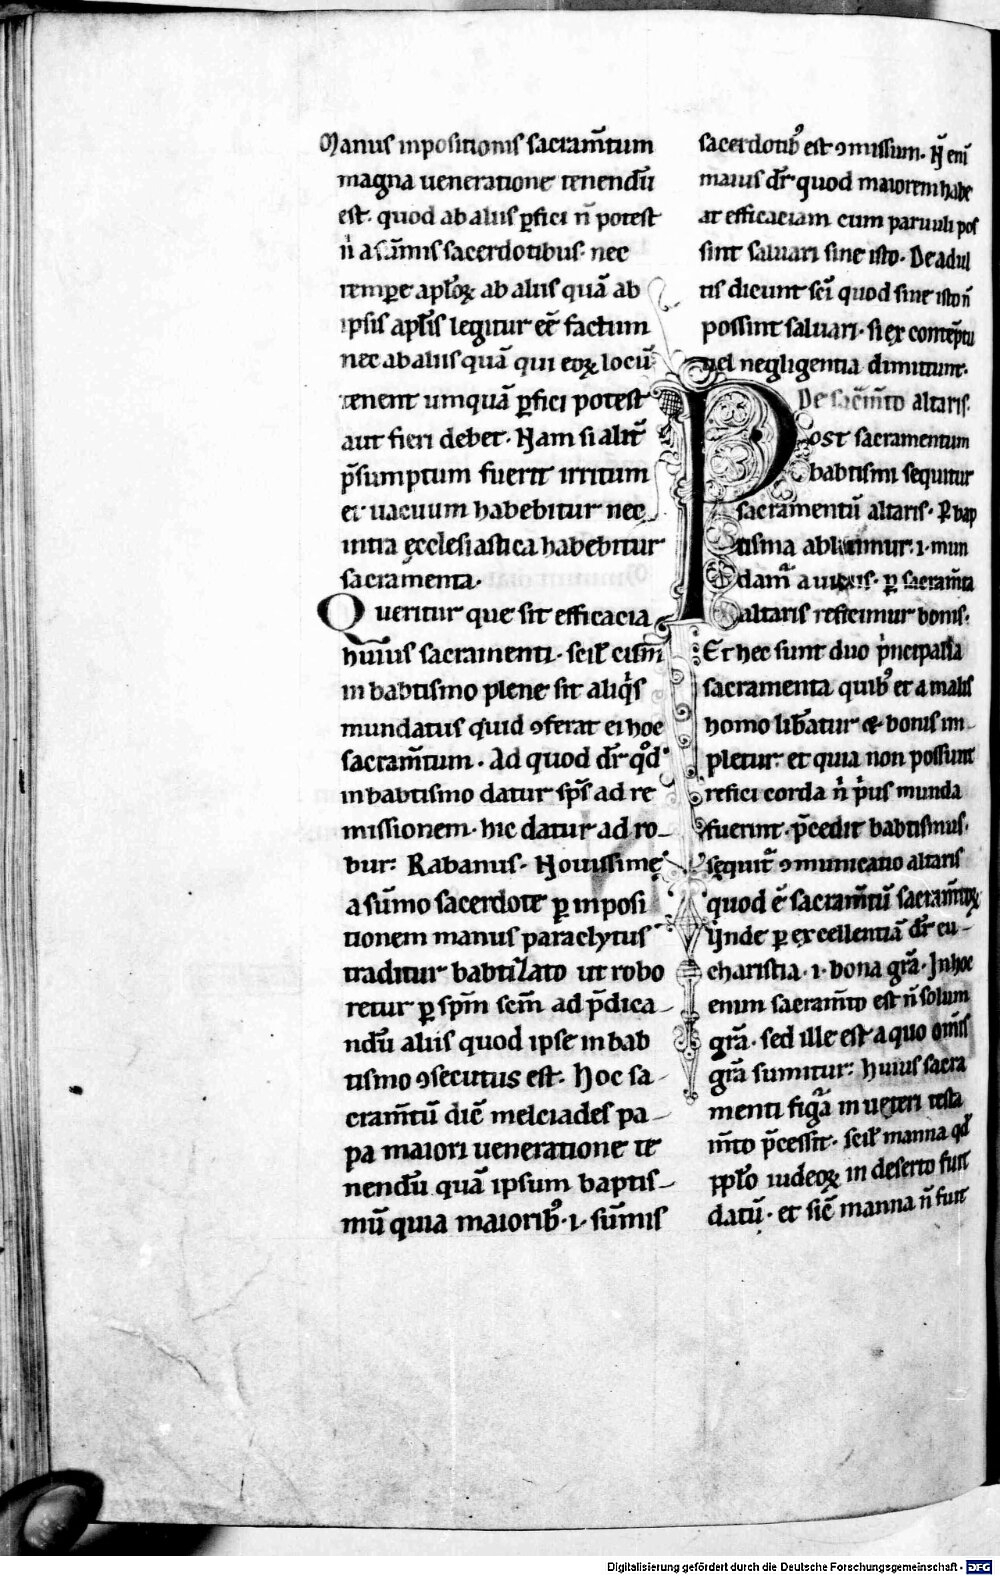 Manus inpositionis sacram̄tum
magna ueneratione tenendū
est. quod ab aliis ꝑfici ñ potest
ñ a sūmis sacerdotibus. nec
temꝑe apl̄oꝝ ab aliis quā ab
ipsis apl̄is legitur eē factum
nec ab aliis quā qui eoꝝ locū
tenent umquā ꝑfici potest
aut fieri debet. Nam si alit̄
p̄sumptum fuerit irritum
et uacuum habebitur nec
intra ęcclesiastica habebitur
sacramenta.
Queritur que sit efficacia
huius sacramenti. scil̄
in babtismo plene sit aliq̇s
mundatus quid ꝯferat ei hoc
sacram̄tum. Ad quod dr̄ qd̄
in babtismo datur sp̄s ad re
missionem. hic datur ad ro-
bur. Rabanus. Nouissime
a sūmo sacerdote ꝑ inposi
tionem manus paraclytus
traditur babtizato ut robo
retur ꝑ sp̄m sc̄m ad p̄dica-
ndū aliis quod ipse in bab
tismo ꝯsecutus est. Hoc sa-
cram̄tū dic̄ melciades pa-
pa maiori ueneratione te
nendū quā ipsum baptis-
mū quia maiorib⁹ .i. sūmis
sacerdotib⁹ est ꝯmissum. N̄ eni
maius dr̄ quod maiorem habe
at efficaciam cum paruuli pos
sint saluari sine isto. De adul
tis dicunt sc̄i quod sine isto ñ
possint saluari. si ex contēptu
uel negligentia dimittunt.
De sac̄m̄to altaris.
Post sacramentum
babtismi sequitur
sacramentū altaris. ꝑ bap
tisma abluimur .i. mun
dam̄ a uiciis. ꝑ sacram̄ta
altaris reficimur bonis.
Et hec sunt duo ṗncipalia
sacramenta quib⁹ et a malis
homo lib̄atur & bonis im-
pletur. et quia non possunt
refici corda ñ ṗus munda
fuerint. p̄cedit babtismus.
sequit̄ ꝯmunicatio altaris
quod ē sacram̄tū sacram̄toꝝ
Unde ꝑ excellentiā dr̄ eu-
charistia .i. bona gr̄a. In hoc
enim sacram̄to est ñ solum
gr̄a. sed ille est a quo om̄is
gr̄a sumitur. huius sacra
menti figura in ueteri testa
m̄to p̄cessit. scil̄ manna qd̄
ppl̄o iudeoꝝ in deserto fuit
datū. et sic̄ manna ñ fuit